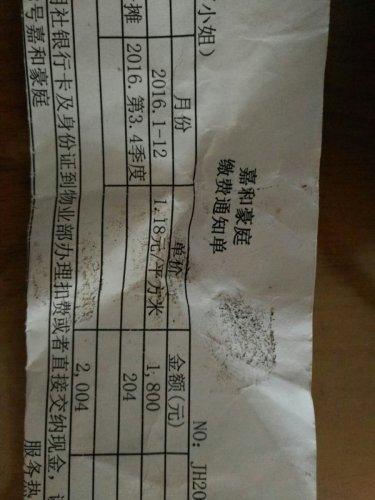 嘉和豪庭
缴费通知单
NO: JH20
小姐)
月份 单价 金额(元)
2016.1-12 1.18元/平方米 1,800
摊 2016.第3.4季度 204
2,004
社银行卡及身份证到物业部办理扣费或者直接交纳现金,
号嘉和豪庭 服务热